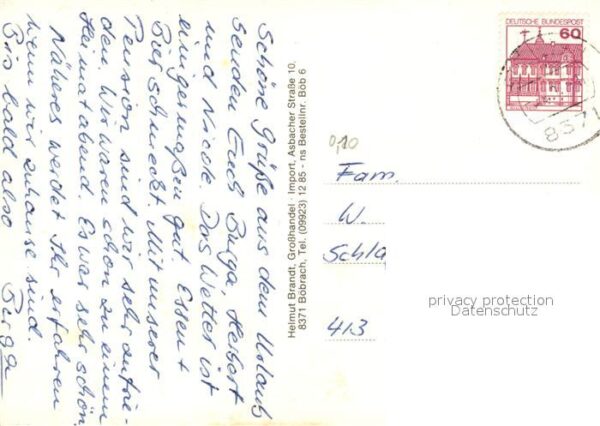 Schöne Grüße aus dem Urlaub
senden Euch Burga, Herbert
und Nicole. Das Wetter ist
einigermaßen gut. Essen +
Bier schmeckt. Mit unserer
Pension sind wir sehr zufrie-
den. Wir waren schon zu einem
Heimatabend. Es war sehr schön.
Näheres werdet Ihr erfahren
wenn wir zuhause sind.
Bis bald also Burga
Helmut Brandt, Großhandel · Import, Asbacher Straße 10,
8371 Böbrach, Tel. (09923) 12 85 - ns Bestellnr. Böb 6
DEUTSCHE BUNDESPOST
60
8371
0,10
Fam.
W.
Schla
413
privacy protection
Datenschutz